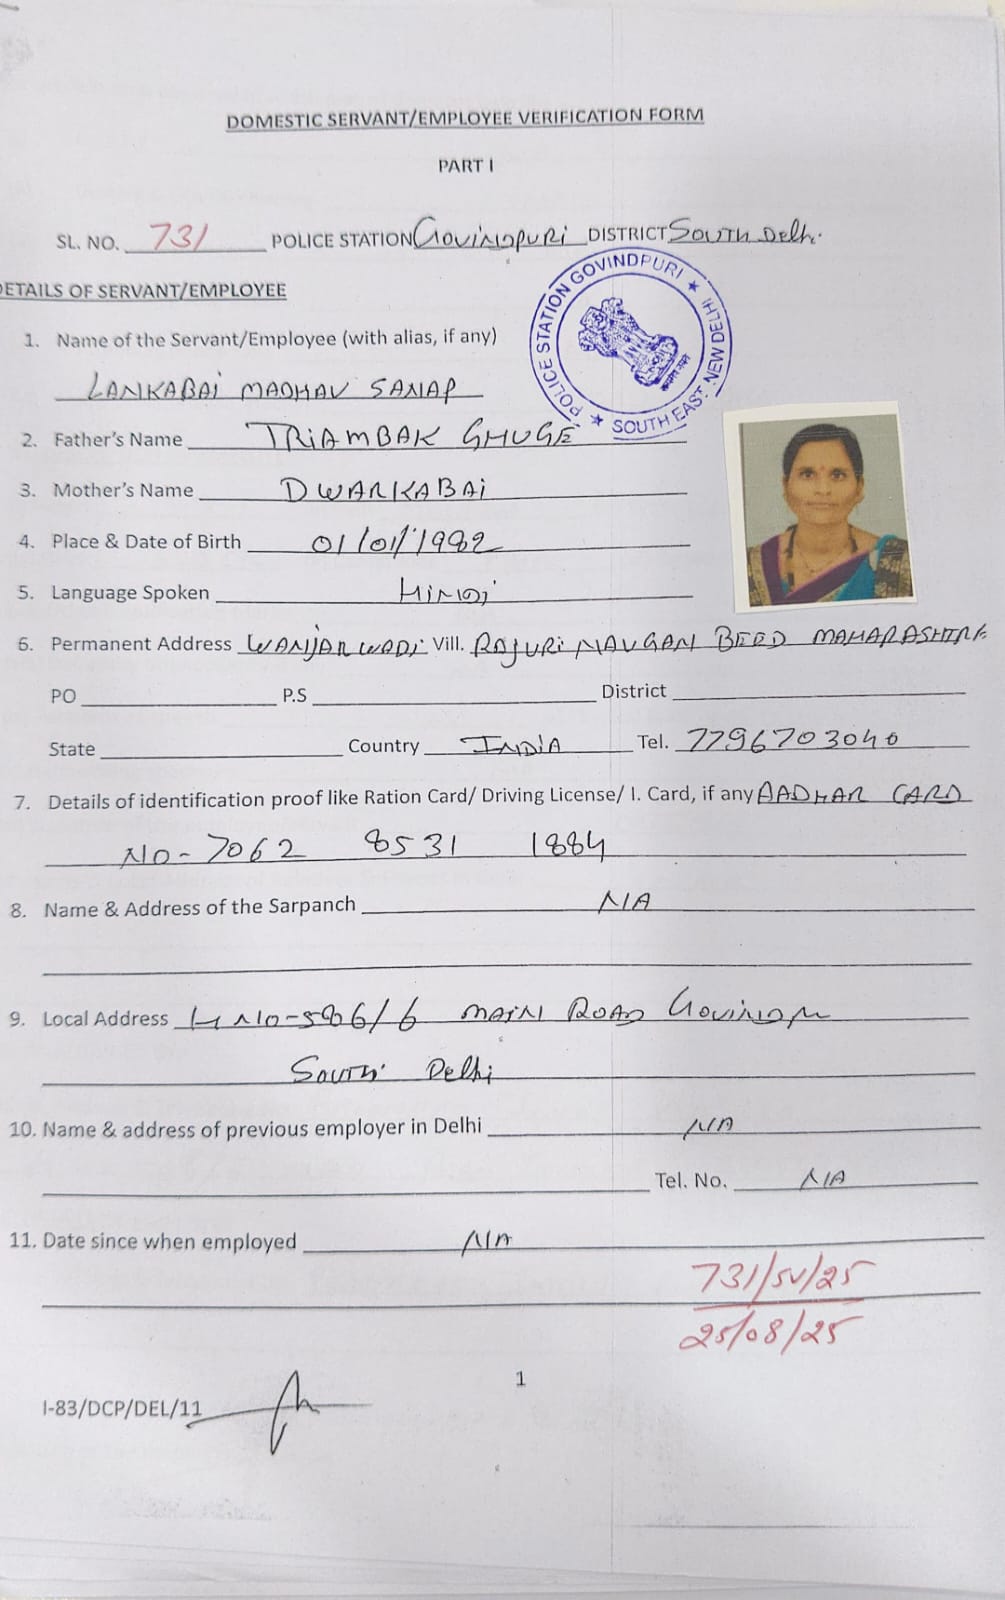 DOMESTIC SERVANT/EMPLOYEE VERIFICATION FORM
PART I
SL. NO. 731 POLICE STATION GOVINDPURI DISTRICT SOUTH Delhi
POLICE STATION GOVINDPURI ★ SOUTH EAST: NEW DELHI ★
DETAILS OF SERVANT/EMPLOYEE
1. Name of the Servant/Employee (with alias, if any)
LANKABAI MADHAV SANAP
2. Father's Name TRIAMBAK GHUGE
3. Mother's Name DWARKABAI
4. Place & Date of Birth 01/01/1982
5. Language Spoken HINDI
6. Permanent Address WANJARWADI Vill. RAJURI NAVGAN BEED MAHARASHTRA
PO P.S District
State Country INDIA Tel. 7796703040
7. Details of identification proof like Ration Card/ Driving License/ I. Card, if any AADHAR CARD
NO- 7062 8531 1884
8. Name & Address of the Sarpanch N/A
9. Local Address H NO-586/6 MAIN ROAD
SOUTH Delhi
10. Name & address of previous employer in Delhi N/A
Tel. No. N/A
11. Date since when employed N/A
731/SV/25
25/08/25
1
I-83/DCP/DEL/11